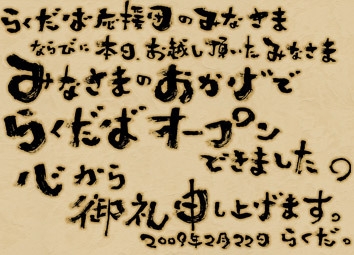 らくだば応援団のみなさま
ならびに本日、お越し頂いたみなさま
みなさまのおかげで
らくだばオープン
できました。
心から
御礼申し上げます。
2009年2月22日 らくだ。